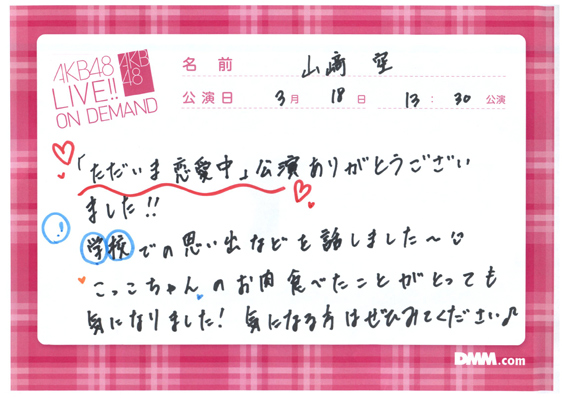 AKB48
LIVE!!
ON DEMAND
AKB
48
名前 山﨑 空
公演日 3月 18日 13:30 公演
「ただいま恋愛中」公演ありがとうござい
ました!!
! 学校での思い出などを話しました〜
こっこちゃんのお肉食べたことがとっても
気になりました! 気になる方はぜひみてください♪
DMM.com